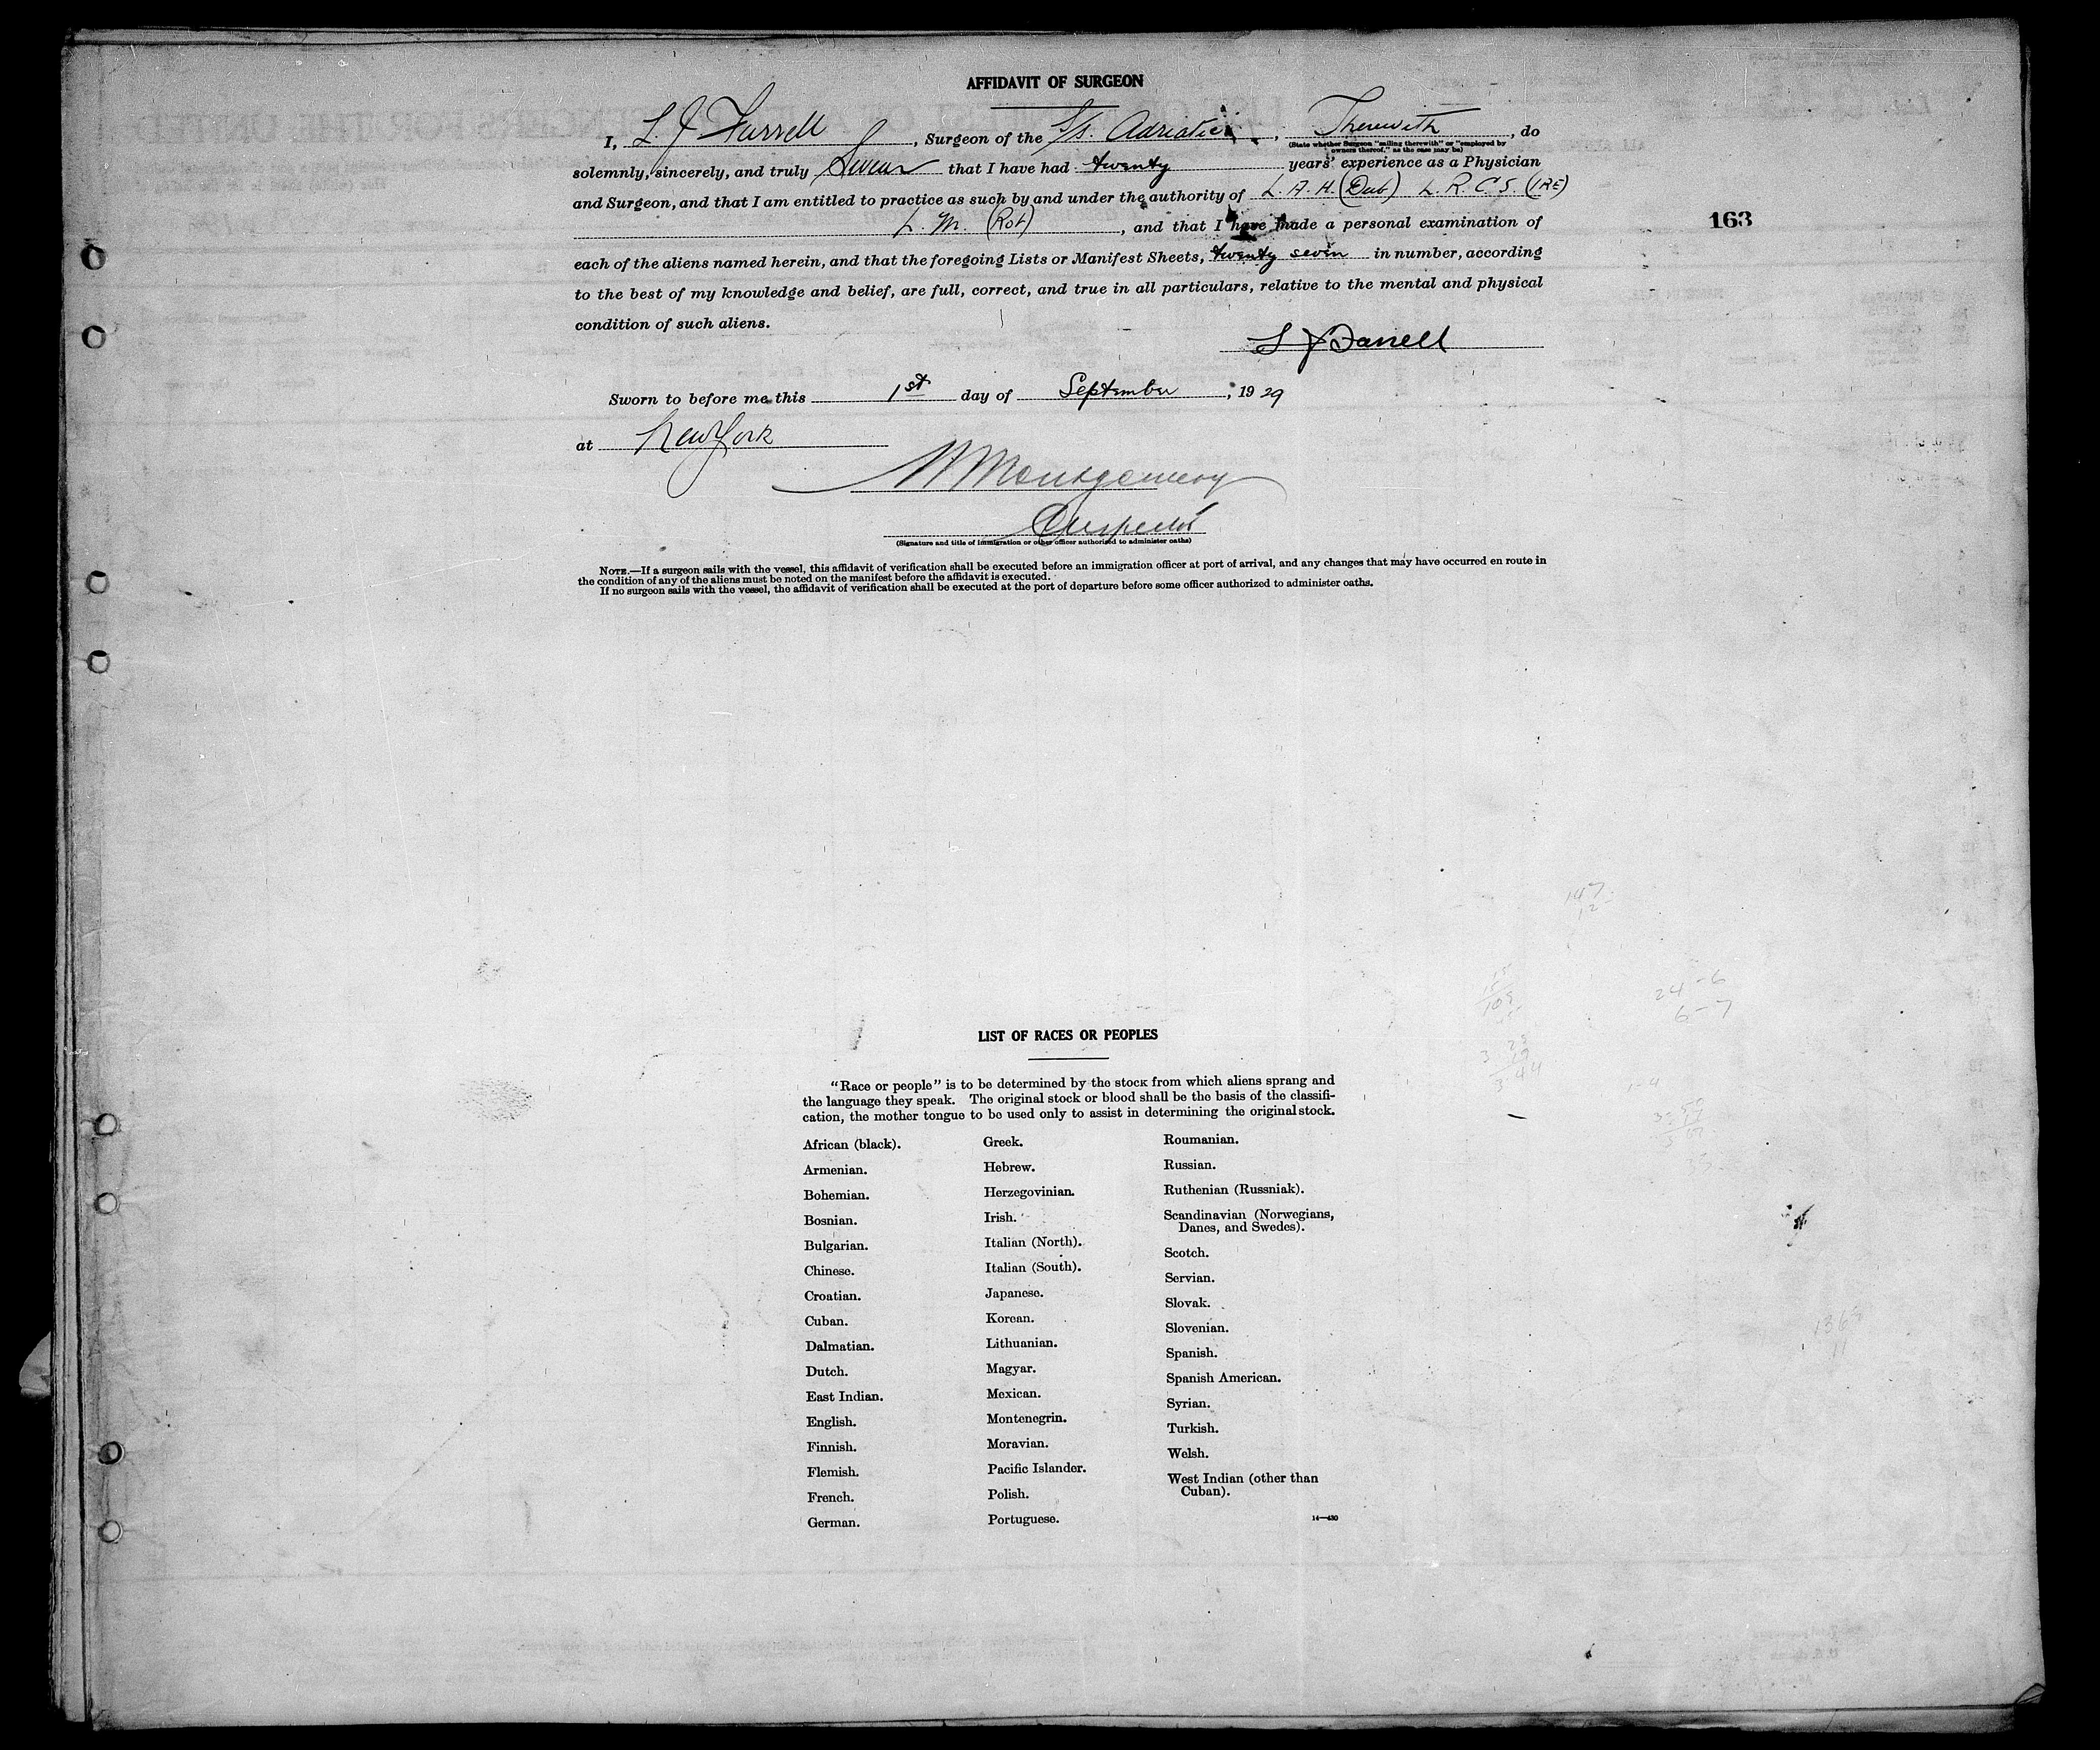 AFFIDAVIT OF SURGEON
I, L. J. Farrell, Surgeon of the S/s. Adriatic, Therewith, do
(State whether Surgeon "sailing therewith" or "employed by
owners thereof," as the case may be)
solemnly, sincerely, and truly Swear that I have had twenty years' experience as a Physician
and Surgeon, and that I am entitled to practice as such by and under the authority of L. A. H. (Dub) L. R. C. S. (IRE)
L. M. (Rot), and that I have made a personal examination of
each of the aliens named herein, and that the foregoing Lists or Manifest Sheets, twenty seven in number, according
to the best of my knowledge and belief, are full, correct, and true in all particulars, relative to the mental and physical
condition of such aliens.
L J Farrell
Sworn to before me this 1st day of September, 1929
at New York
Montgomery
Inspector
(Signature and title of immigration or other officer authorized to administer oaths)
NOTE.—If a surgeon sails with the vessel, this affidavit of verification shall be executed before an immigration officer at port of arrival, and any changes that may have occurred en route in
the condition of any of the aliens must be noted on the manifest before the affidavit is executed.
If no surgeon sails with the vessel, the affidavit of verification shall be executed at the port of departure before some officer authorized to administer oaths.
163
147
12
24-6
6-7
LIST OF RACES OR PEOPLES
"Race or people" is to be determined by the stock from which aliens sprang and
the language they speak. The original stock or blood shall be the basis of the classifi-
cation, the mother tongue to be used only to assist in determining the original stock.
African (black).
Armenian.
Bohemian.
Bosnian.
Bulgarian.
Chinese.
Croatian.
Cuban.
Dalmatian.
Dutch.
East Indian.
English.
Finnish.
Flemish.
French.
German.
Greek.
Hebrew.
Herzegovinian.
Irish.
Italian (North).
Italian (South).
Japanese.
Korean.
Lithuanian.
Magyar.
Mexican.
Montenegrin.
Moravian.
Pacific Islander.
Polish.
Portuguese.
Roumanian.
Russian.
Ruthenian (Russniak).
Scandinavian (Norwegians,
Danes, and Swedes).
Scotch.
Servian.
Slovak.
Slovenian.
Spanish.
Spanish American.
Syrian.
Turkish.
Welsh.
West Indian (other than
Cuban).
14—430